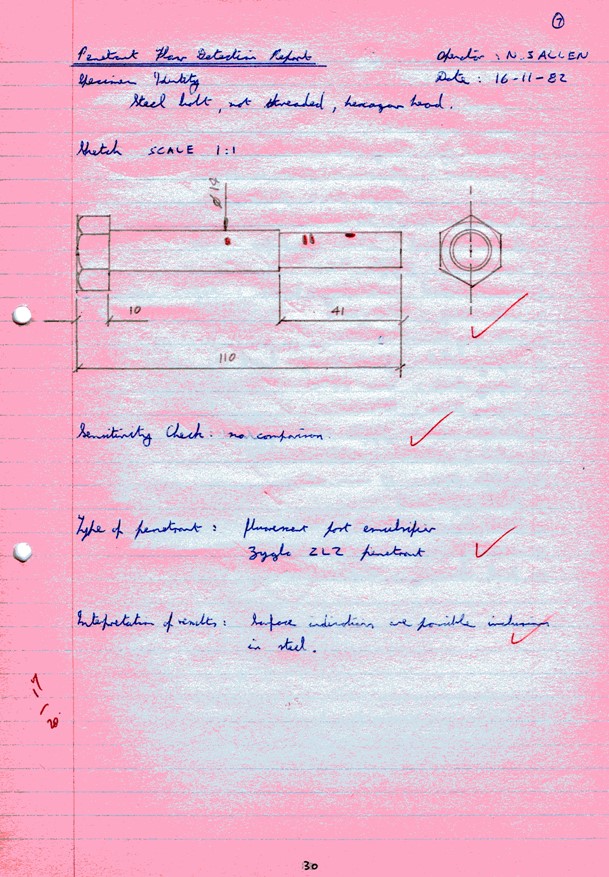 7
Penetrant Flaw Detection Report
Operator : N. S ALLEN
Specimen Identity
Date : 16-11-82
Steel bolt, not threaded, hexagon head.
Sketch SCALE 1:1
ø 14
10
41
110
Sensitivity Check: no comparison.
Type of penetrant : fluorescent post emulsifier
Zyglo ZL2 penetrant
Intepretation of results : Surface indications are possible inclusions
in steel.
17
20
30